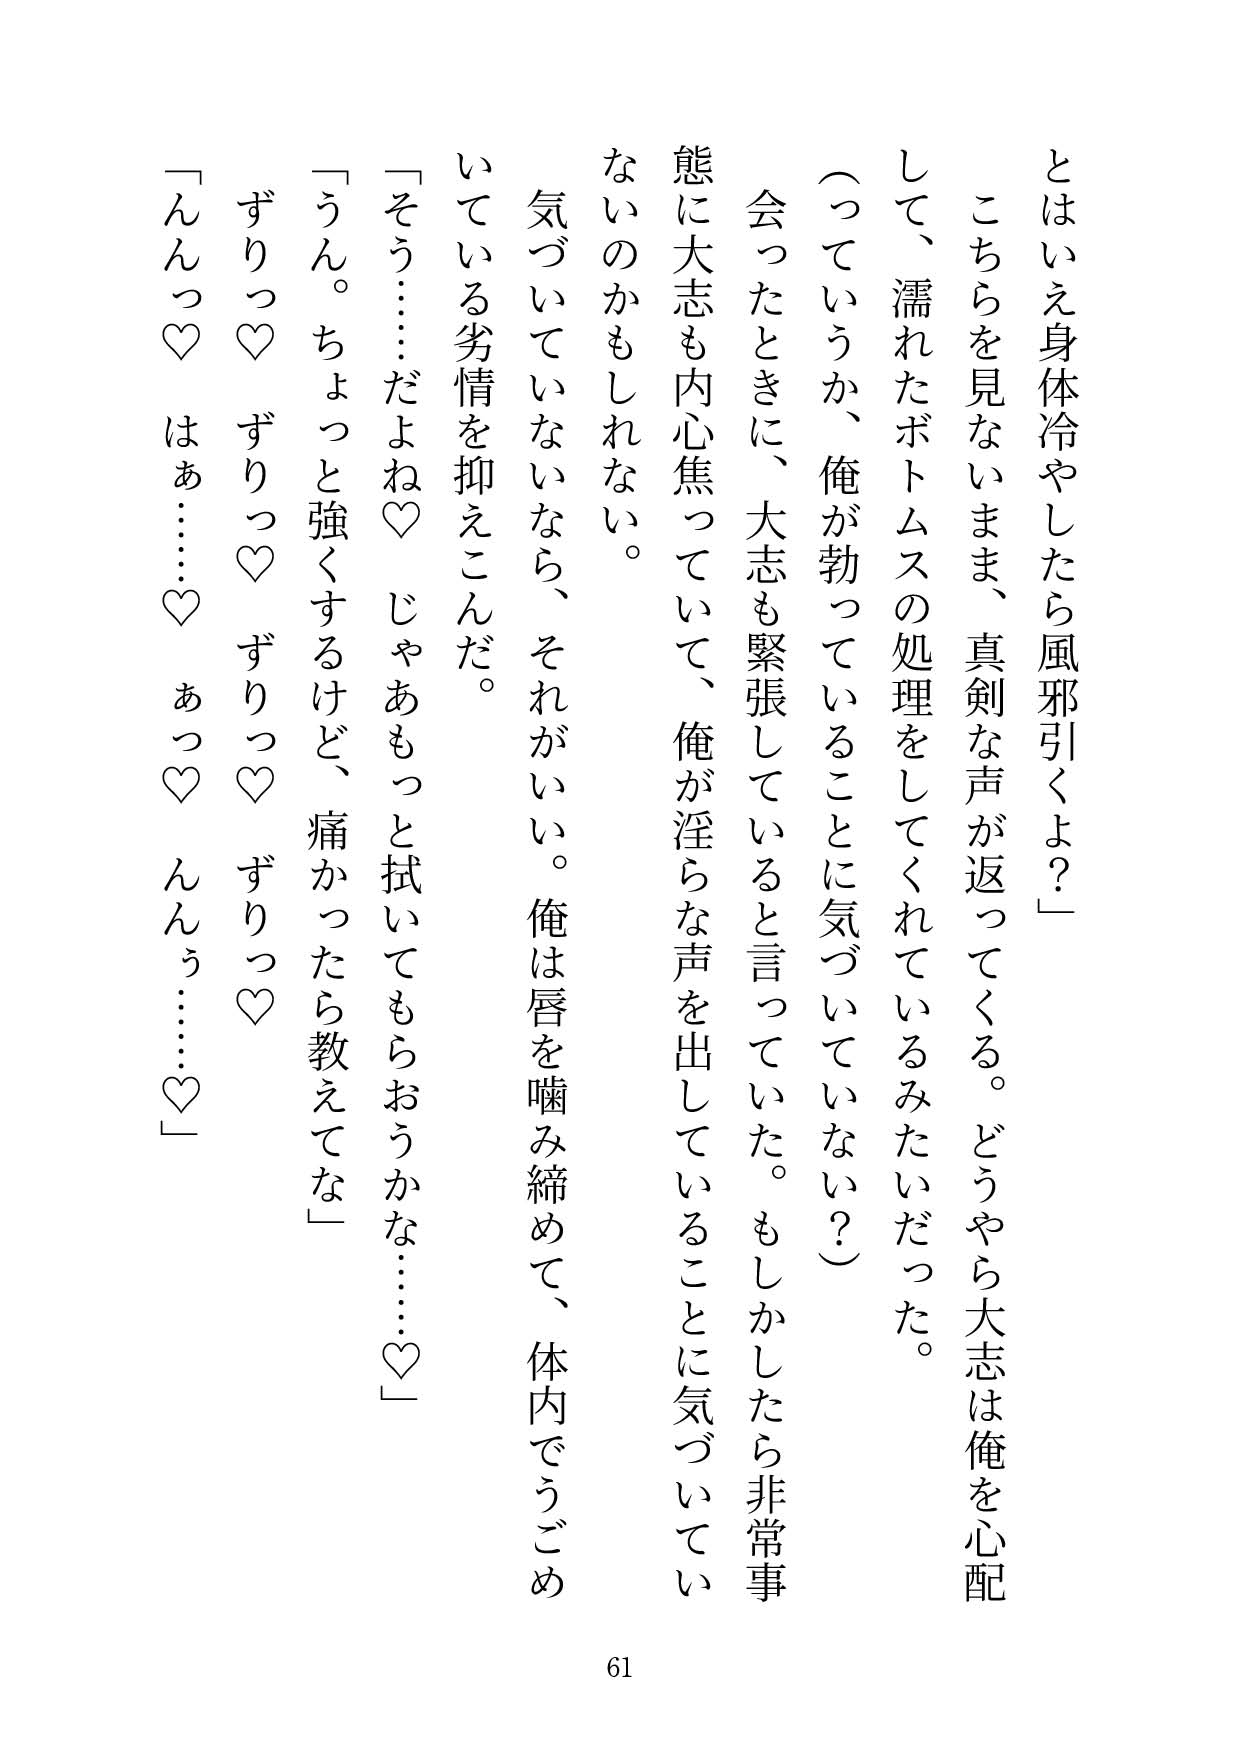 とはいえ身体冷やしたら風邪引くよ？」
　こちらを見ないまま、真剣な声が返ってくる。どうやら大志は俺を心配
して、濡れたボトムスの処理をしてくれているみたいだった。
（っていうか、俺が勃っていることに気づいていない？）
　会ったときに、大志も緊張していると言っていた。もしかしたら非常事
態に大志も内心焦っていて、俺が淫らな声を出していることに気づいてい
ないのかもしれない。
　気づいていないなら、それがいい。俺は唇を噛み締めて、体内でうごめ
いている劣情を抑えこんだ。
「そう……だよね♡　じゃあもっと拭いてもらおうかな……♡」
「うん。ちょっと強くするけど、痛かったら教えてな」
　ずりっ♡　ずりっ♡　ずりっ♡　ずりっ♡
「んんっ♡　はぁ……♡　ぁっ♡　んんぅ……♡」
61